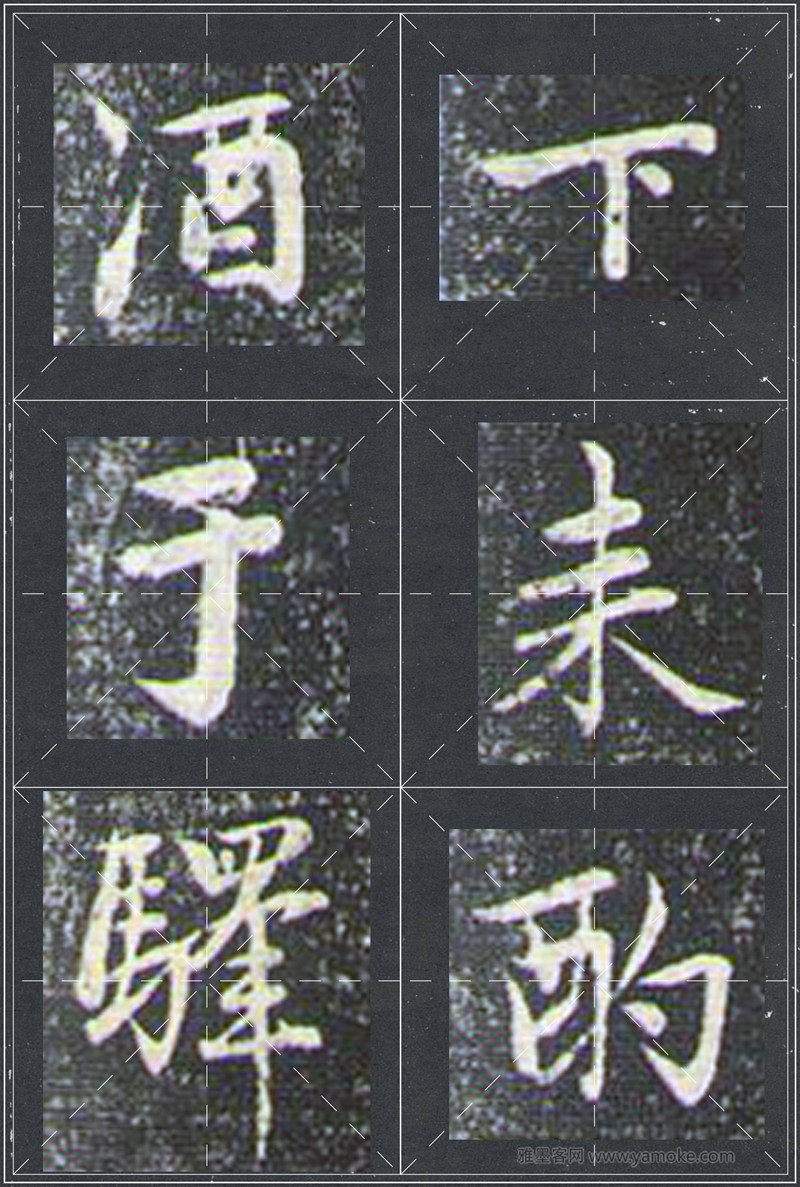 下耒酌
酒于驛
雅墨客网 www.yamoke.com